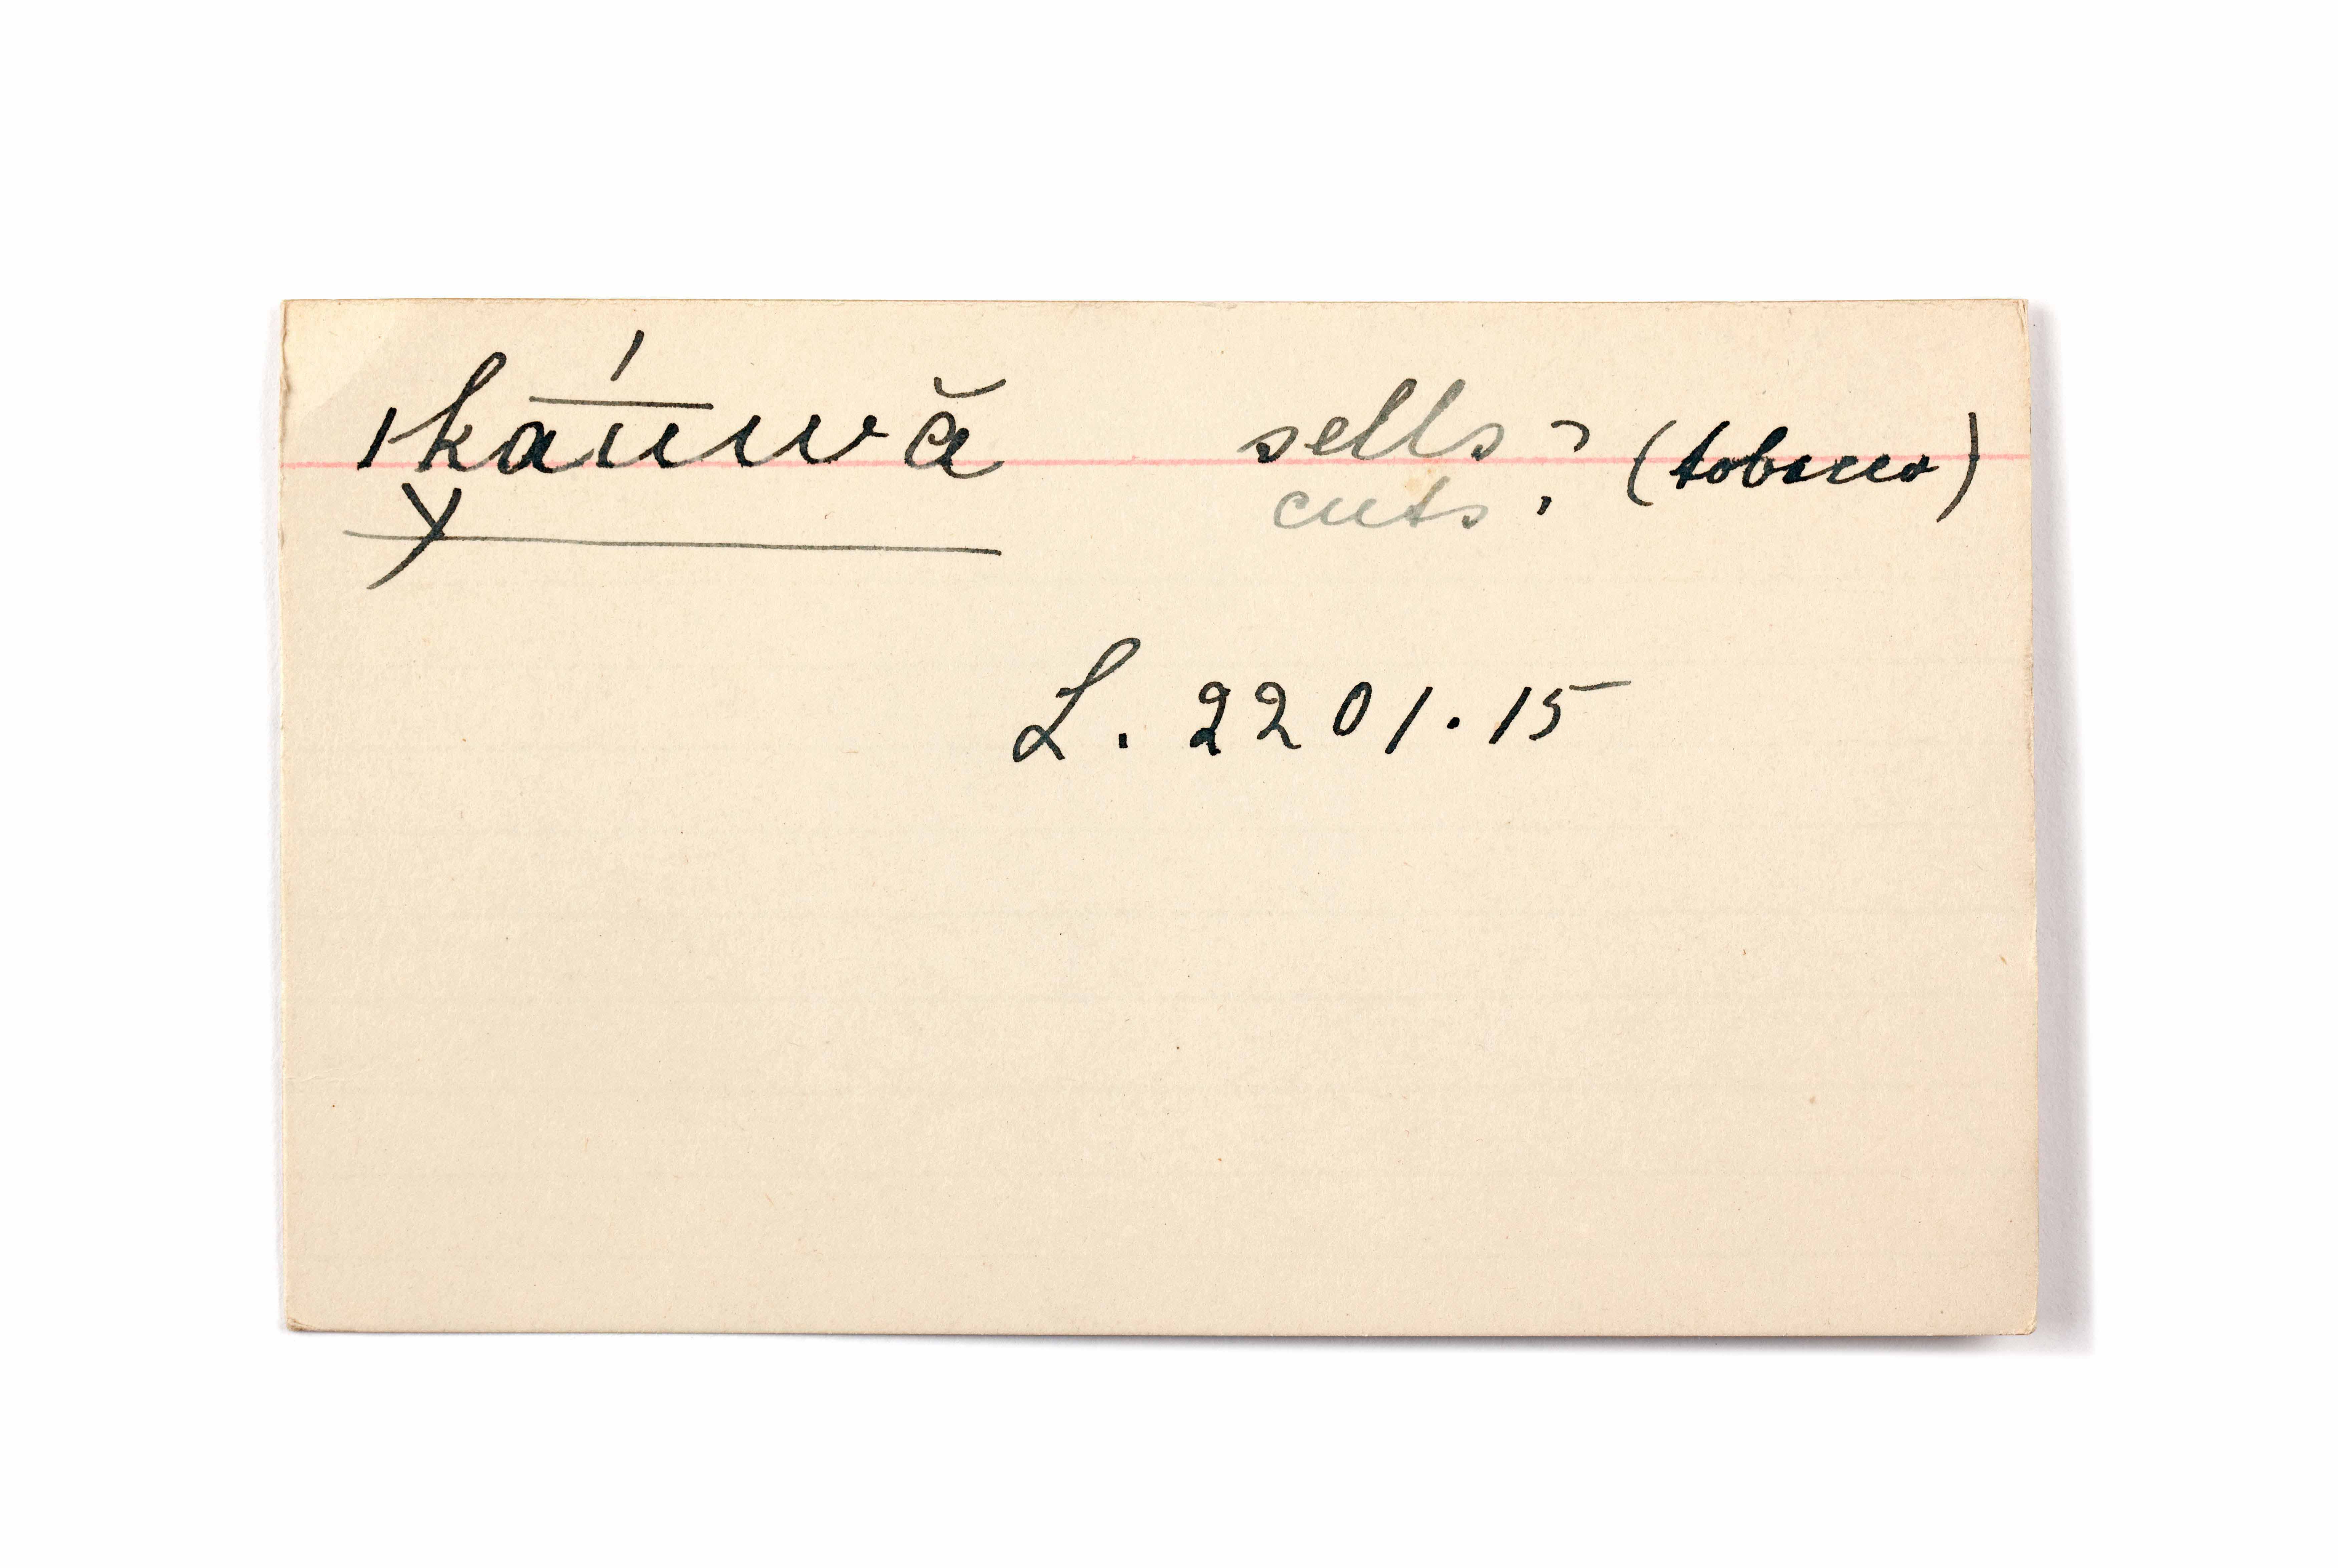 ıkaı́ıwă sells ? (tobacco)
cuts ?
L. 2201.15